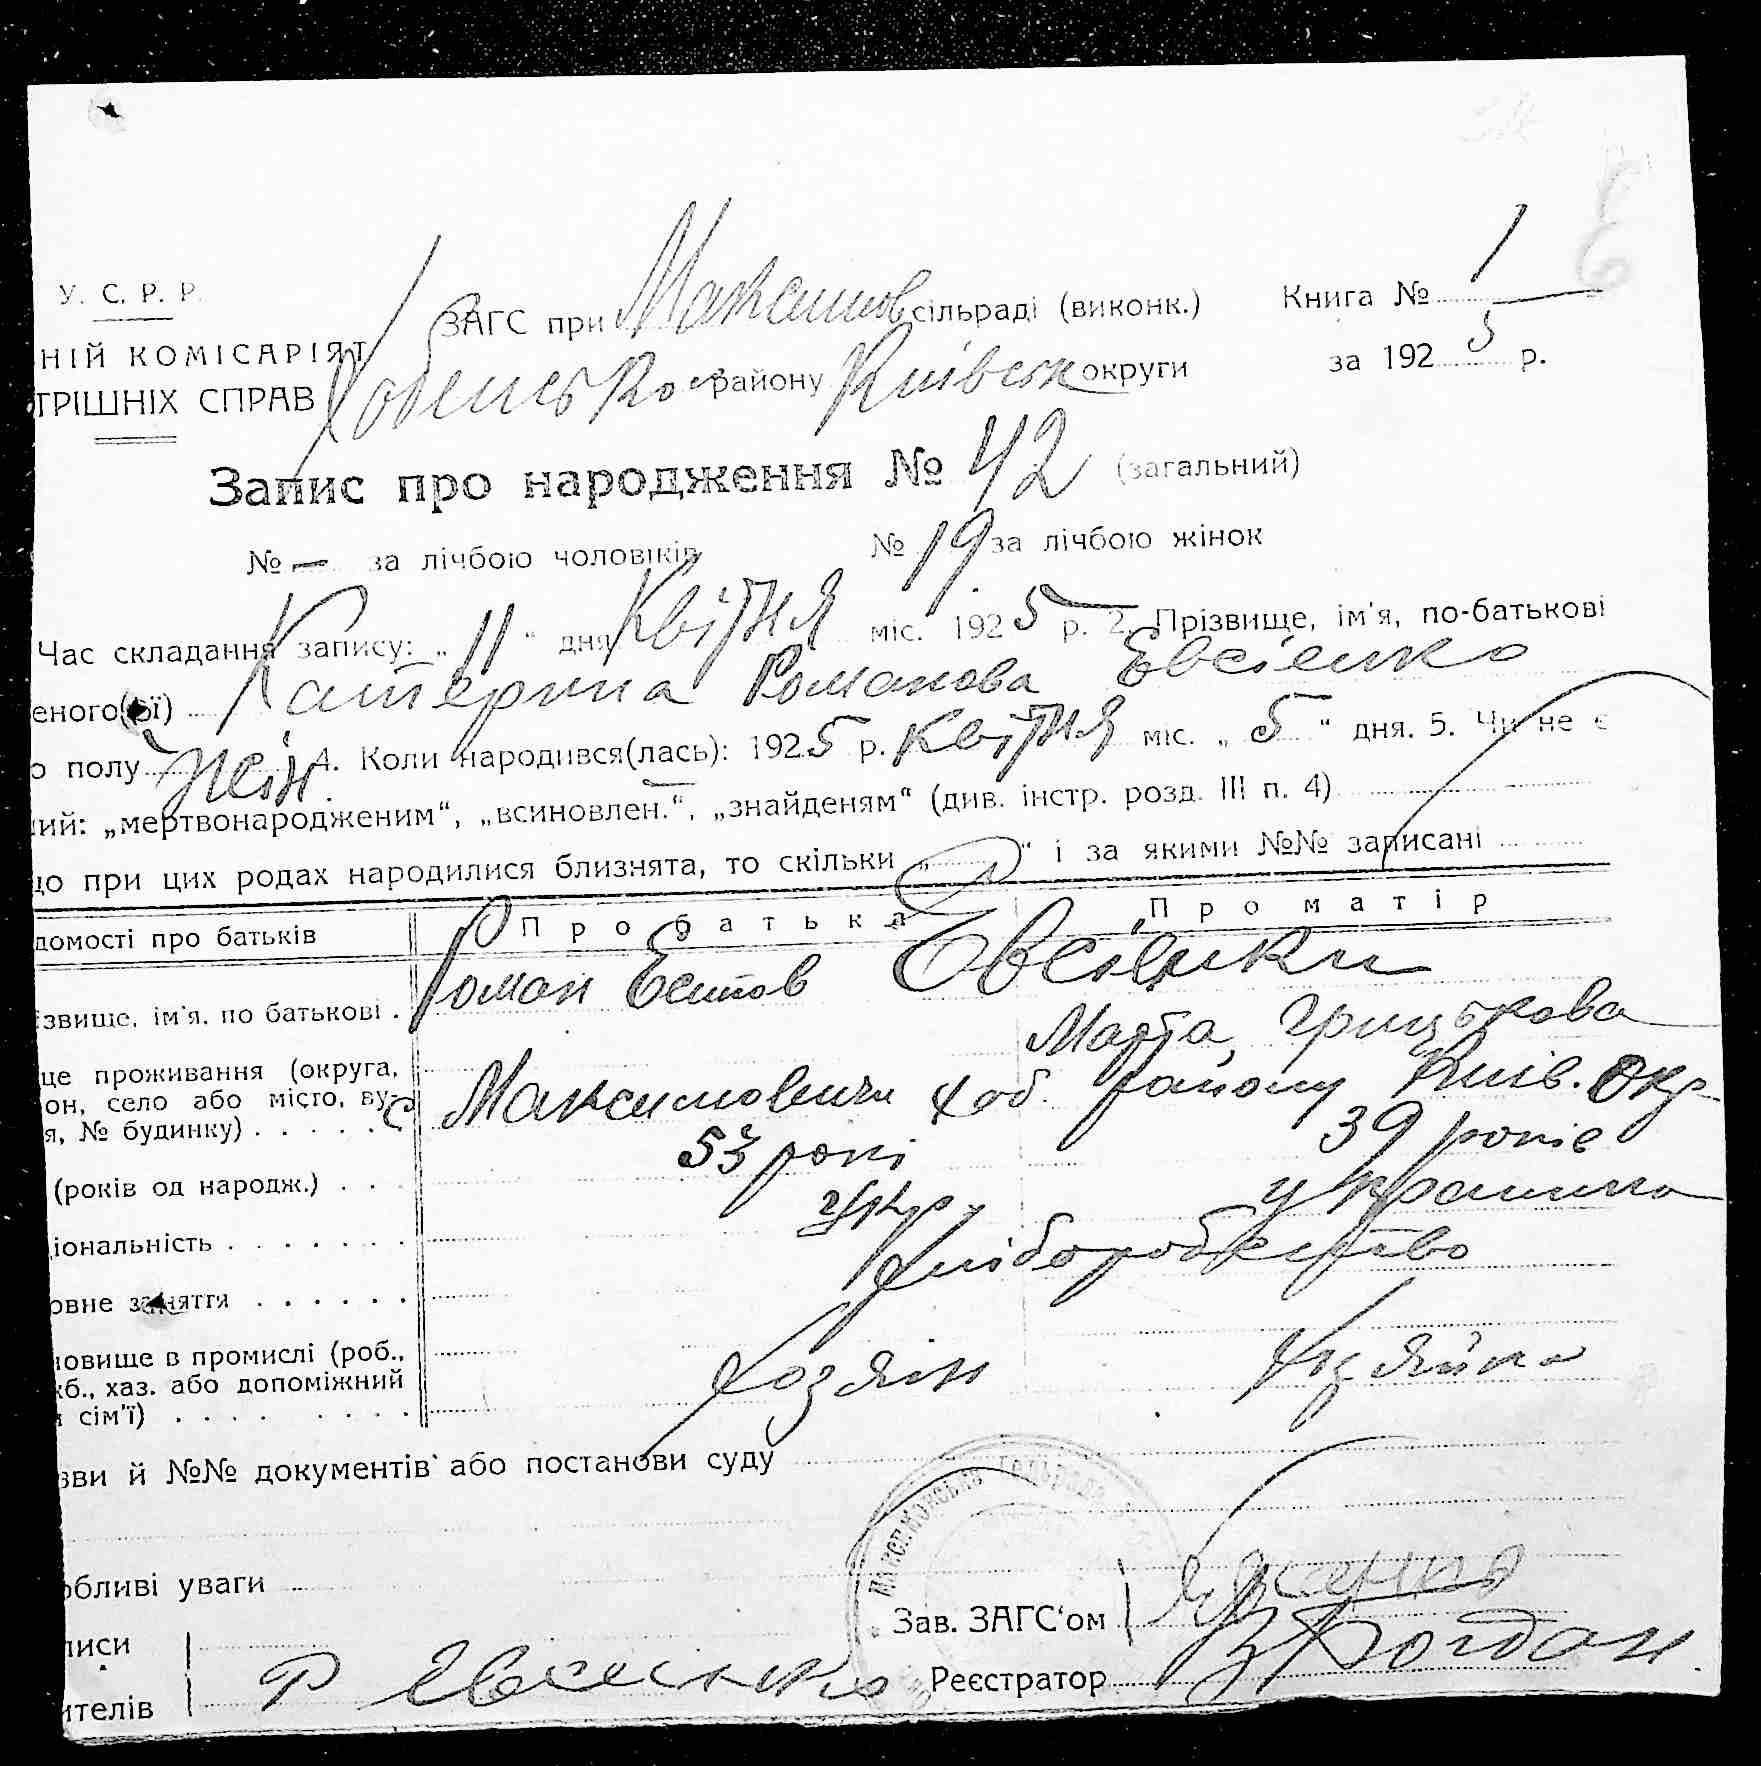 У. С. Р. Р.
ЗАГС при Максимов сільраді (виконк.) Книга № 1
НІЙ КОМІСАРІЯТ
Хабенсько району Київськ округи за 1925 р.
ТРІШНІХ СПРАВ
Запис про народження № 42 (загальний)
№ — за лічбою чоловіків № 19 за лічбою жінок
Час складання запису: „11“ дня Квітня міс. 1925 р. 2. Прізвище, ім'я, по-батькові
еного(ої) Катерина Романова Евсіенко
о полу жін. 4. Коли народився(лась): 1925 р. Квітня міс. „5“ дня. 5. Чи не є
ий: „мертвонародженим“, „всиновлен.“, „знайденям“ (див. інстр. розд. III п. 4)
що при цих родах народилися близнята, то скільки „ “ і за якими №№ записані
домості про батьків Про батька Про матір
Роман Евсіенки
ізвище, ім'я, по батькові . Марта Грицькова
це проживання (округа,
он, село або місто, ву- с Максимовичи Хаб. району Київ. Окр
я, № будинку) . . . . .
(років од народж.) . . . 53 рокі 39 років
іональність . . . . . . . Укр. украинка
овне заняття . . . . . . хліборобство
новище в промислі (роб.,
жб., хаз. або допоміжний хозяін хазяйка
и сім'ї) . . . . . . . .
зви й №№ документів або постанови суду
Максимовська сільрада
обливі уваги
Зав. ЗАГС'ом
писи
Р Евсіенко Реєстратор Богдан
ителів